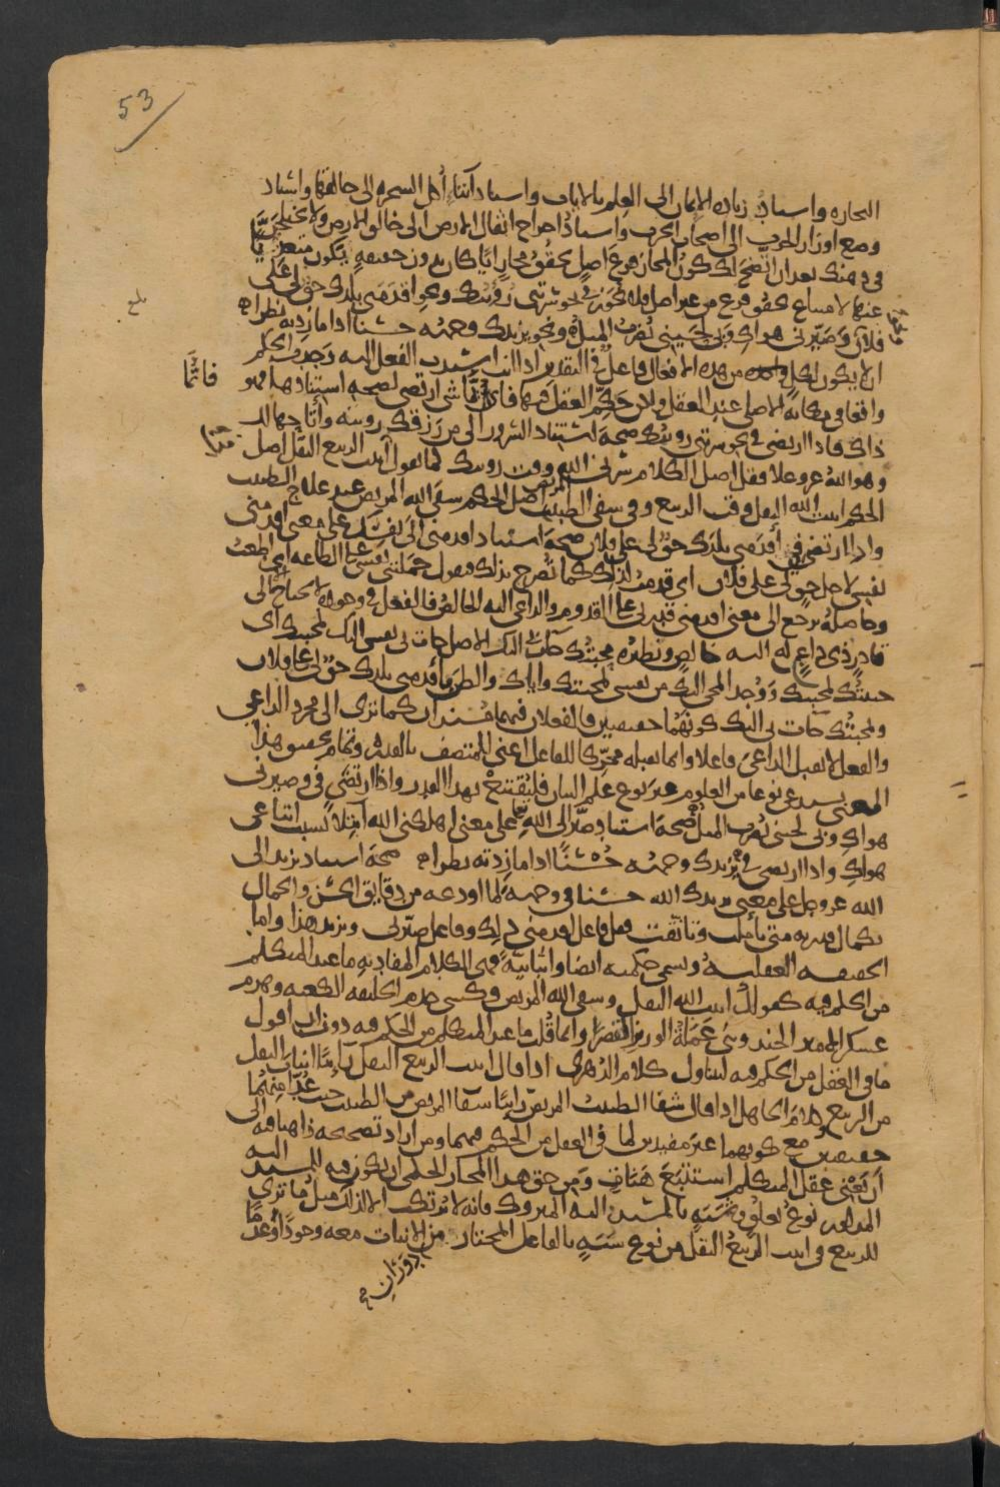 53
التجارة واسناد زيادة الايمان الى العلم بالايات واسناد آتنا أكل الشجرة الى خالقها واسناد
وضع اوزار الحرب الى اصحاب الحرب واسناد اخراج اثقال الارض الى خالق الارض ولا يختلجن
في ذهنك بعد ان اتضح لك كون المجاز فرع اصل تحقق مجاز ايا كان بدون حقيقة يكون متعديا
عنها لامتناع تحقق فرع من غير اصل فلا تجوز في نحو سرتني رؤيتك ونحو اقدمني بلدك حق لي على
فلان وصيرني هواك وبي لحيني يضرب المثل ونحو يزيدك وجهه حسنا اذا ما زدته نظرا
ان لا يكون لكل من هذه الافعال فاعل في التقدير اذا انت اسندت الفعل اليه وجدت الحكم
واقعا في مكانه الاصلي عند العقل ولكن حكم العقل فيها فايما شي ارتضى لصحة استنادها فهو
فائما
ذاك فاذا ارتضى في نحو سرتني رؤيتك صحة استناد السرور الى من رزقك رؤيته وأتاحها لك
وهو الله عز وعلا فقل اصل الكلام سرني الله وقت رؤيتك كما تقول انبت الربيع البقل اصل
الحكم انبت الله البقل وقت الربيع وفي شفى الطبيب المريض اصل الحكم شفى الله المريض عند علاج الطبيب
واذا ارتضى في أقدمني بلدك حق لي على فلان صحة اسناد اقدمني الى نفسك على معنى اقدمتني
نفسي لاجل حق لي على فلان اي قدمت لذلك كما تصرح بذلك فتقول حملتني نفسي على الطاعة اي اطعت
وحاصله يرجع الى معنى اقدمني قادر لي على القدوم والداعي اليه الخالص فالفعل في وجوده لا يحتاج الى
قادر ذي داع له اليه خالص ونظيره محبتك جاءت بي اليك الاصل جاءت بي نفسي اليك لمحبتك اي
جئتك لمحبتك ووجد المجي اليك من نفسي لمحبتك واياك والظن بأقدمني بلدك حق لي على فلان
ومحبتك جاءت بي اليك كونهما حقيقتين فالفعلان فيهما مسندان كما ترى الى مجرد الداعي
والفعل لا يقبل الداعي فاعلا وانما يقبله محركا للفاعل اعني المتصف بالقدرة وتمام تحقيق هذا
المعنى يستدعي نوعا من العلوم غير نوع علم البيان فليقتنع بهذا القدر واذا ارتضى في وصيرني
هواك وبي لحيني يضرب المثل صحة اسناد صير الى الله تعالى على معنى اهلكني الله ابتلاء بسبب اتباعي
هواك واذا ارتضى في يزيدك وجهه حسنا اذا ما زدته نظرا صحة اسناد يزيد الى
الله عز وجل على معنى يزيدك الله حسنا في وجهه لما اودعه من دقايق الحسن والجمال
بكمال قدرته متى تاملت وتأنقت فقل فاعل اقدمني ذلك وفاعل صيرني ويزيد هذا واما
الحقيقة العقلية وتسمى حكمية ايضا واثباتية فهي الكلام المفاد به ما عند المتكلم
من الحكم فيه كقولك انبت الله البقل وشفى الله المريض وكسى خدم الخليفة الكعبة وهزم
عسكر الامير الجند وبنى عملة الوزير القصر وانما قلت ما عند المتكلم من الحكم فيه دون ان اقول
ما في العقل من الحكم فيه ليتناول كلام الدهري اذا قال انبت الربيع البقل رائيا انبات البقل
من الربيع وكلام الجاهل اذا قال شفا الطبيب المريض رائيا شفا المريض من الطبيب حيث عدا منهما
حقيقتين مع كونهما غير مفيدين لما في العقل من الحكم فيهما ومن اراد تصحيحه ذاهبا فيه الى
ان يعني عقل المتكلم استتبع هنات ومن حق هذا المجاز الحكمي ان يكون فيه للمسند اليه
المذكور نوع تعلق وشبه بالمسند اليه المتروك فانه لا يرتكب الا لذلك مثل ما ترى
للربيع في انبت الربيع البقل من نوع شبه بالفاعل المختار من دوران الانبات معه وجودا وعدما